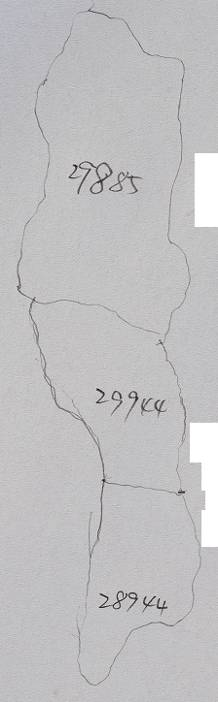 29885
29944
28944